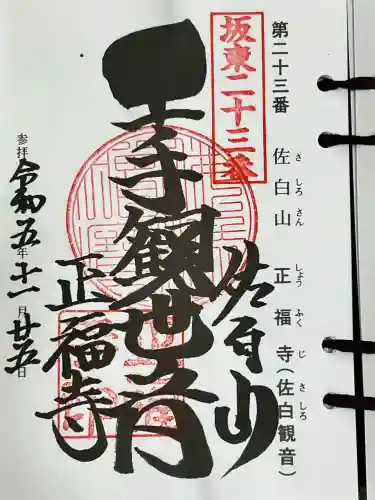 第二十三番 佐白山 正福寺(佐白観音)
さしろさん しょうふくじ さしろ
坂東二十三番
佐白山
千手観世音
正福寺
参拝 令和五年十一月廿五日